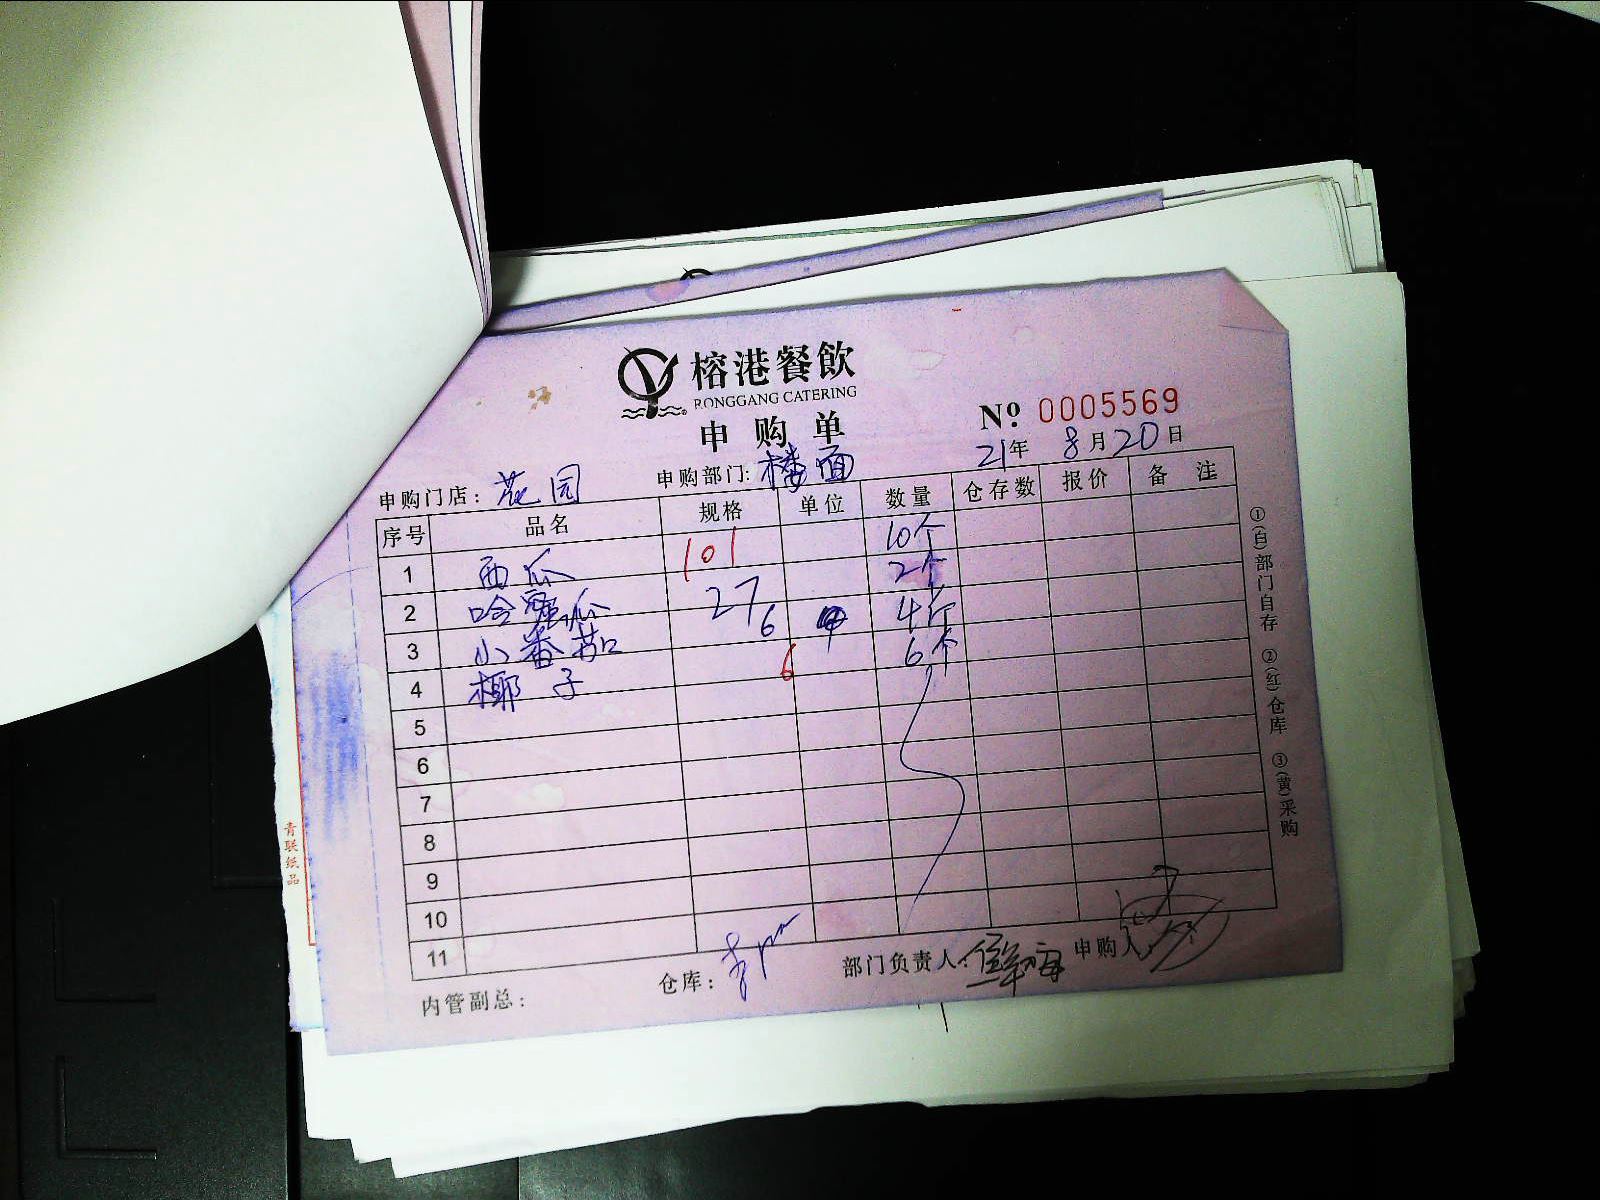 榕港餐飲
RONGGANG CATERING
申购单
№ 0005569
21年 8月20日
申购门店：花园 申购部门：楼面
序号 品名 规格 单位 数量 仓存数 报价 备注
1 西瓜 101 10个
2 哈蜜瓜 27 2个
3 小番茄 6 4斤
4 椰子 6 6个
5
6
7
8
9
10
11
仓库： 部门负责人： 申购人：
内管副总：
①(白)部门自存 ②(红)仓库 ③(黄)采购
青联纸品